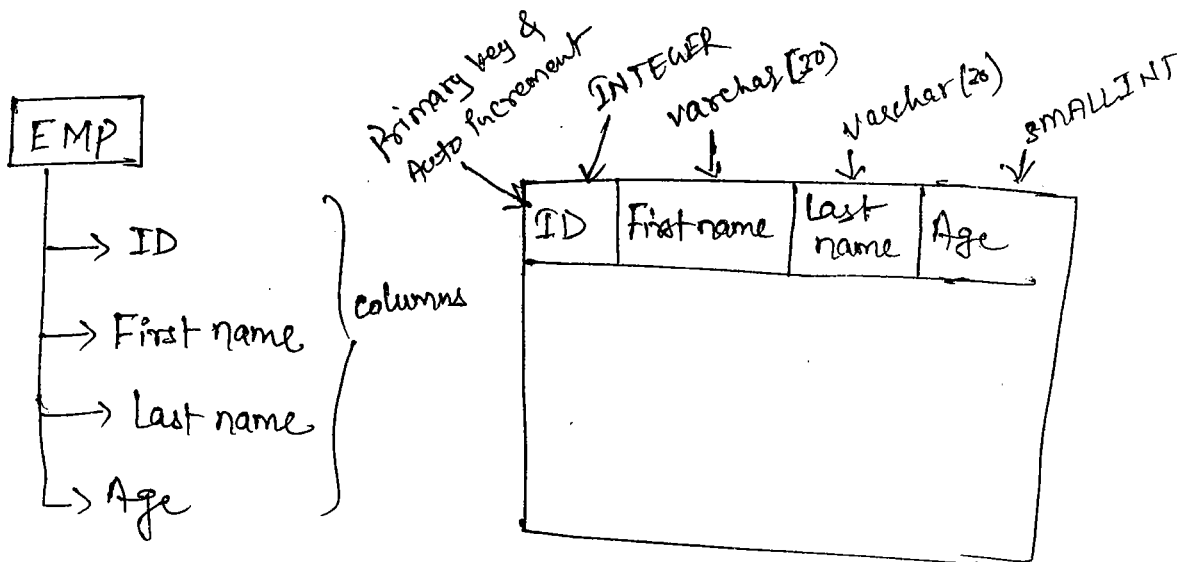 EMP
ID
First name
Last name
Age
columns
Primary key &
Auto Increment
INTEGER
varchar (20)
varchar (20)
SMALLINT
ID
First name
Last
name
Age